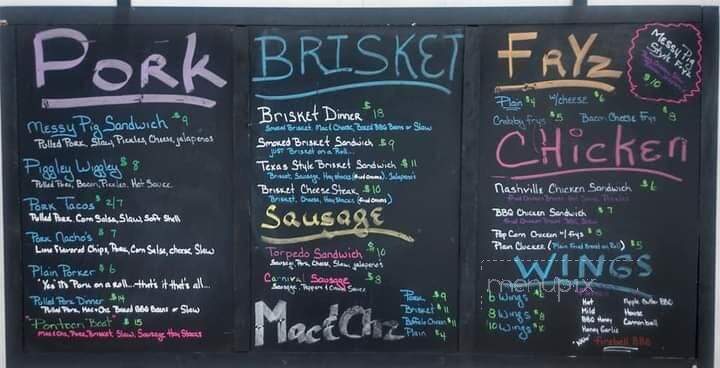 PORK
Messy Pig Sandwich $9
Pulled Pork, Slaw, Pickles, Cheese, jalapenos
Piggley Wiggley $8
Pulled Pork, Bacon, Pickles, Hot Sauce
Pork Tacos $2/7
Pulled Pork, Corn Salsa, Slaw, Soft Shell
Pork Nacho's $7
Lime Flavored Chips, Pork, Corn Salsa, cheese, Slaw
Plain Porker $6
"Yes it's Pork on a Roll...that's it that's all...
Pulled Pork Dinner $14
Pulled Pork, Mac+Chz Baked BBQ Beans or Slaw
"Ponteen Boat" $15
Mac+Chz, Pork, Brisket, Slaw, Sausage Hay Stacks
BRISKET
Brisket Dinner $18
Smoked Brisket, Mac & Cheese, Baked BBQ Beans or Slaw
Smoked Brisket Sandwich $9
Just Brisket on a Roll...
Texas Style Brisket Sandwich $11
Brisket, Sausage, Hay Stacks (fried onions), Jalapeno's
Brisket Cheese Steak $10
Brisket, Cheese, Hay Stacks (fried onions)
Sausage
Torpedo Sandwich $10
Sausage, Pork, Cheese, Slaw, jalapeno's
Carnival Sausage $8
Sausage, Peppers & Onion Sauce
Mac&Chz
Pork $9
Brisket $11
Buffalo Chicken $11
Plain $4
FRYZ
Messy Pig
Style Fryz
$10
Plain $4 w/cheese $6
Crabby frys $5 Bacon Cheese Frys $8
CHicken
Nashville Chicken Sandwich $6
BBQ Chicken Sandwich $7
Pop Corn Chicken w/frys $9
Plain Clucker (Plain Fried Breast on Roll) $5
WINGS
menupix
6 Wings
8 Wings $8
10 Wings
Hot
Mild
BBQ Honey
Honey Garlic
Apple Butter BBQ
House
Cannonball
New Fireball BBQ